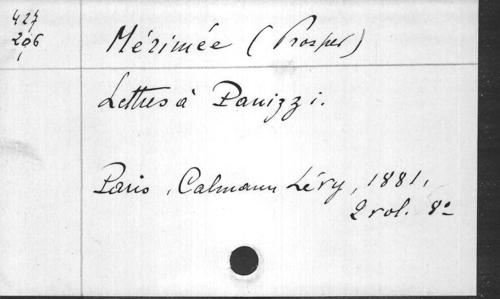 427
206
Mérimée (Prosper)
Lettres à Panizzi.
Paris, Calmann Lévy, 1881,
2 vol. 8°